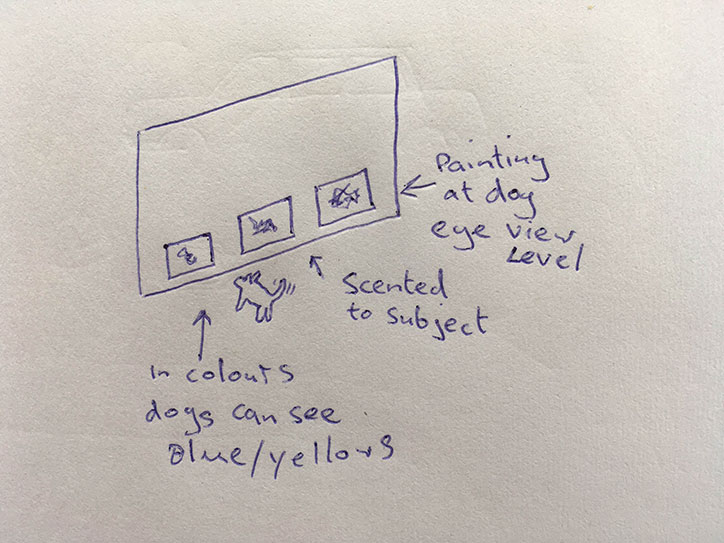 Painting
at dog
eye view
Level
Scented
to subject
In colours
dogs can see
Blue/yellows